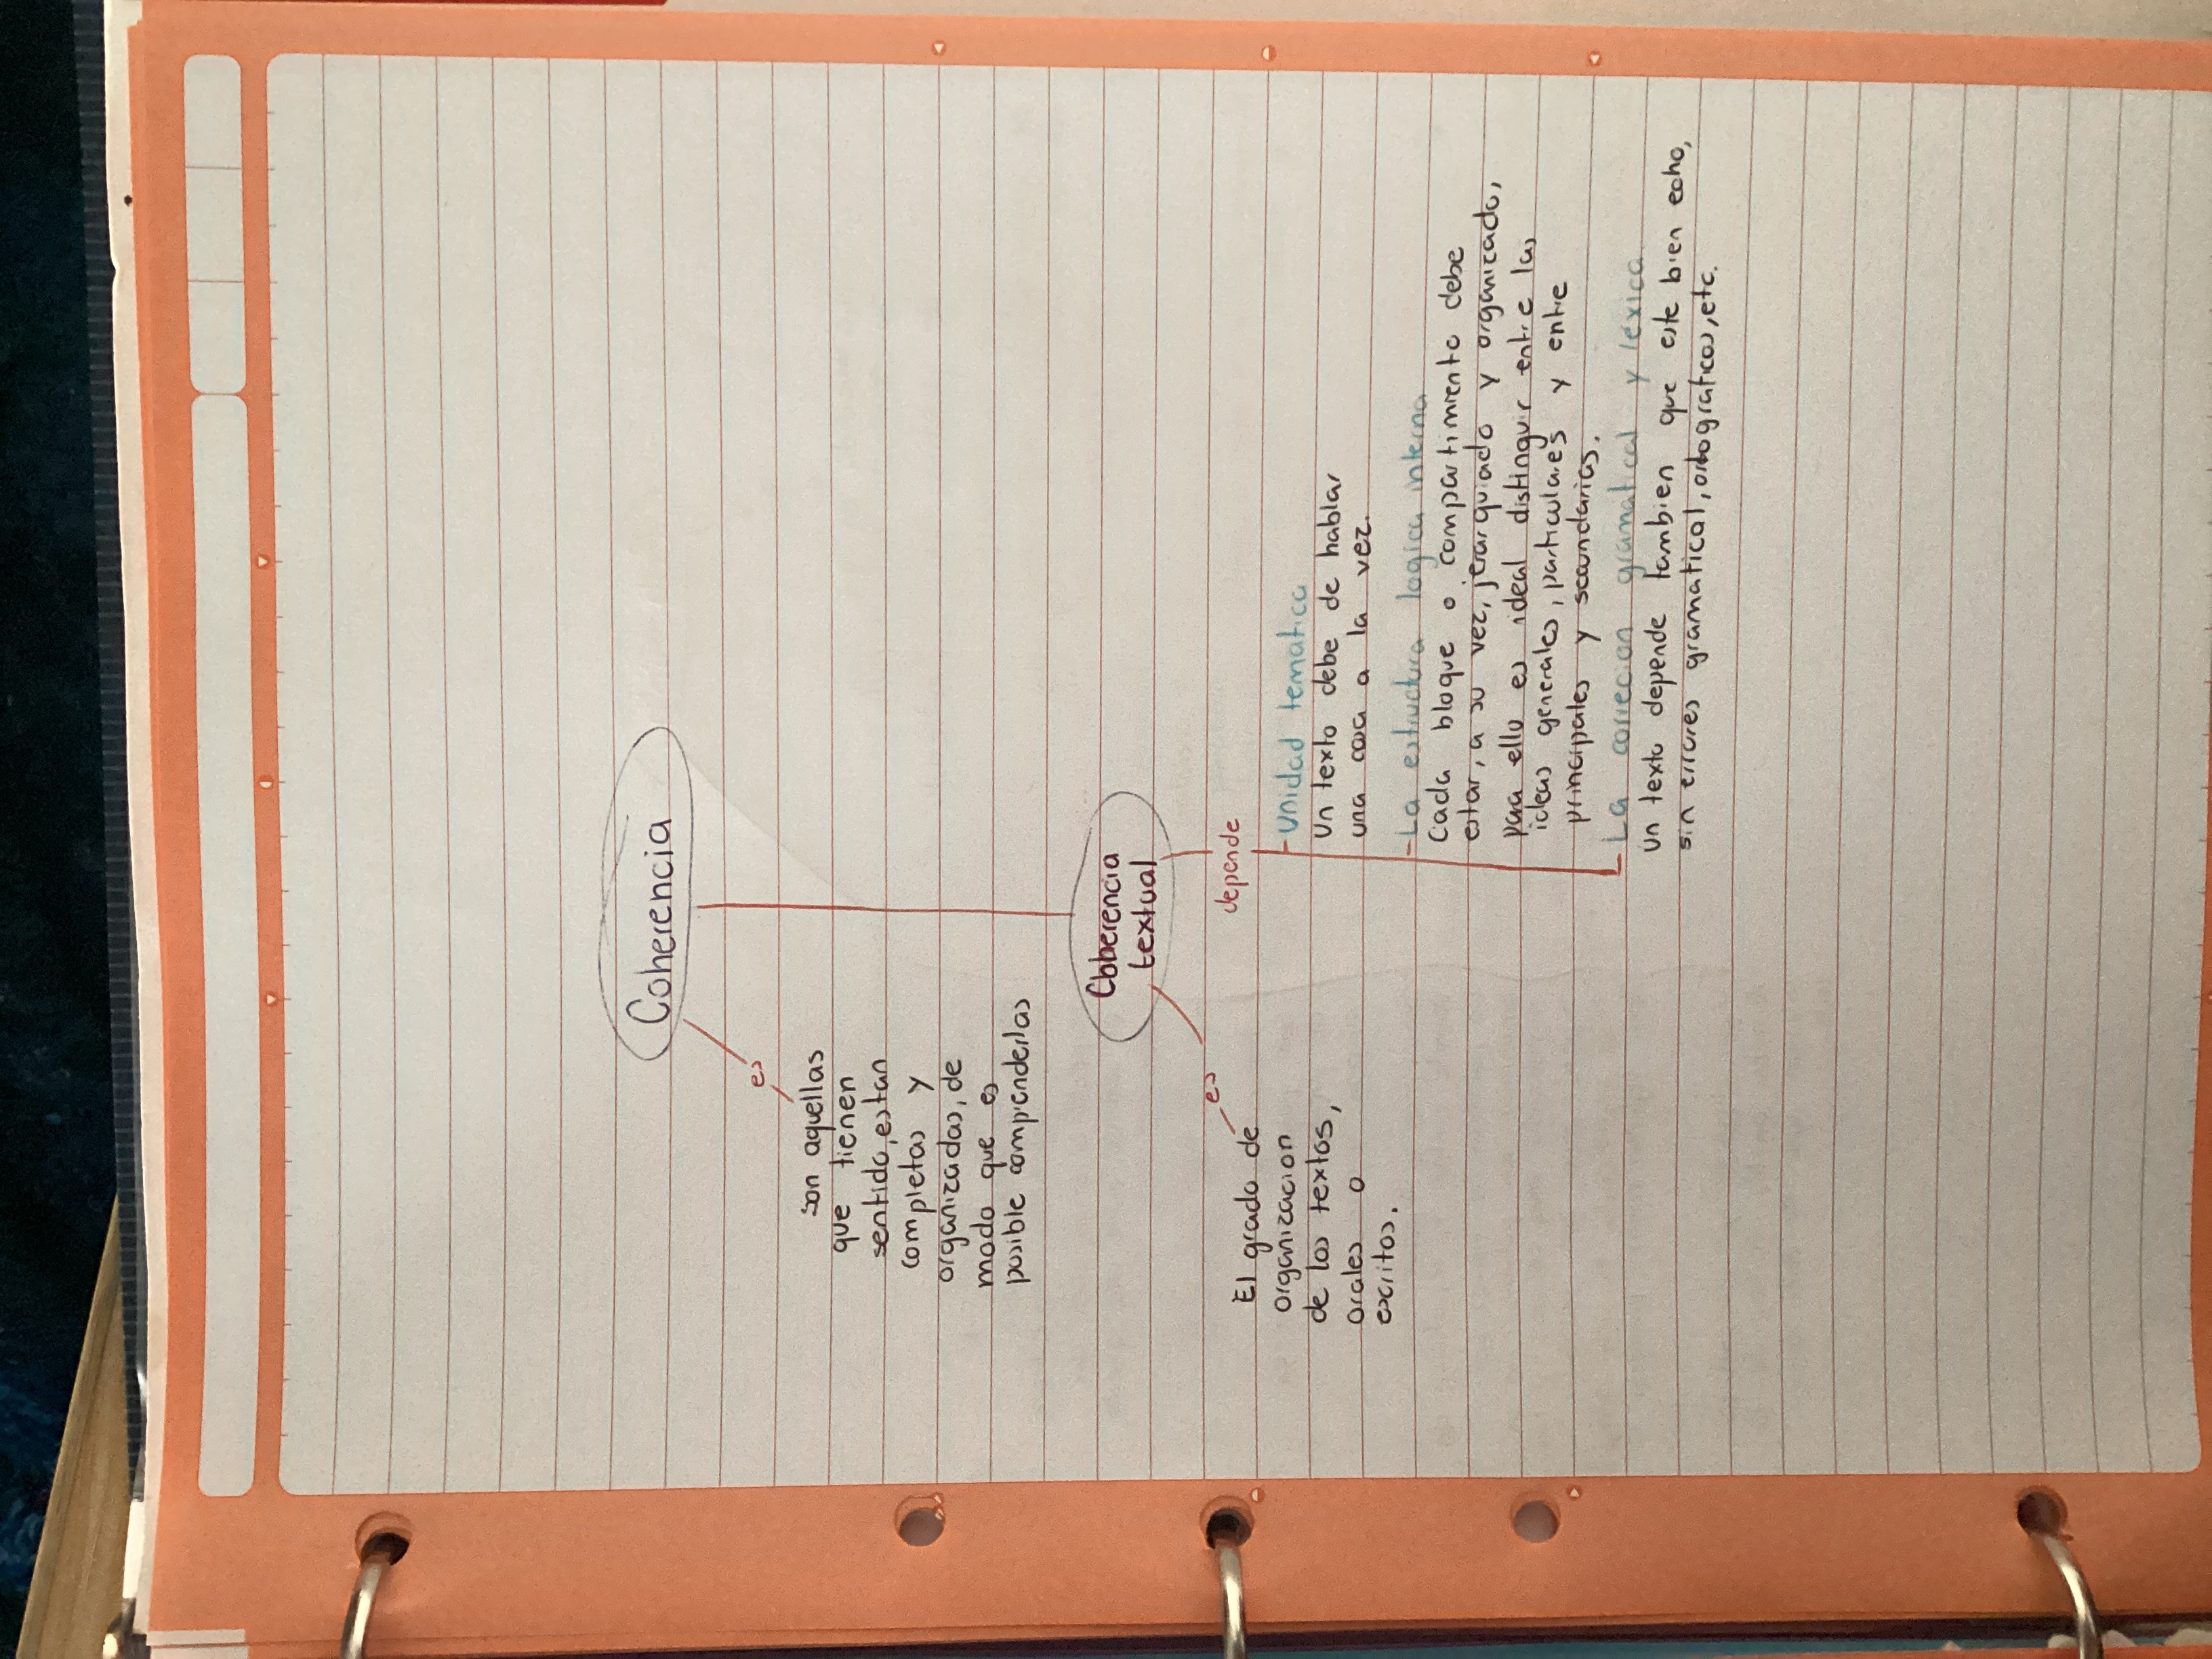 Coherencia
es
son aquellas
que tienen
sentido, estan
completas y
organizadas, de
modo que es
posible comprenderlas
Coherencia
textual
es
El grado de
organizacion
de los textos,
orales o
escritos.
depende
- Unidad tematica
Un texto debe de hablar
una cosa a la vez.
- La estructura logica interna
Cada bloque o compartimiento debe
estar, a su vez, jerarquiado y organizado,
para ello es ideal distinguir entre las
ideas generales, particulares y entre
principales y secundarias.
- La correcion gramatical y lexica
Un texto depende tambien que este bien echo,
sin errores gramatical, ortograficos, etc.